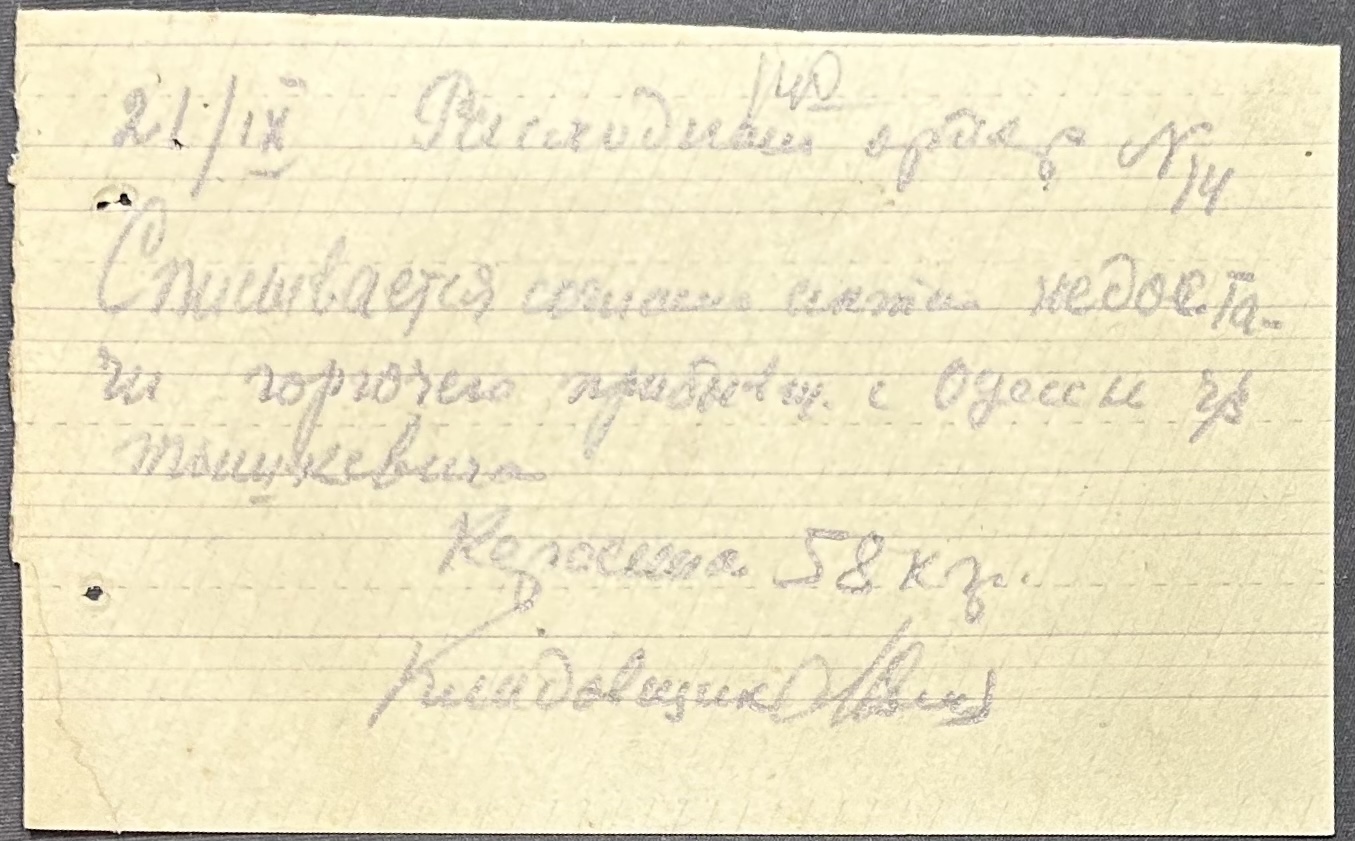 140
21/IX Расходный ордер N 14
Списывается согласно акта недоста-
чи горючего прибывш. с Одессы гр
Керосина 58 кг.
Кладовщик